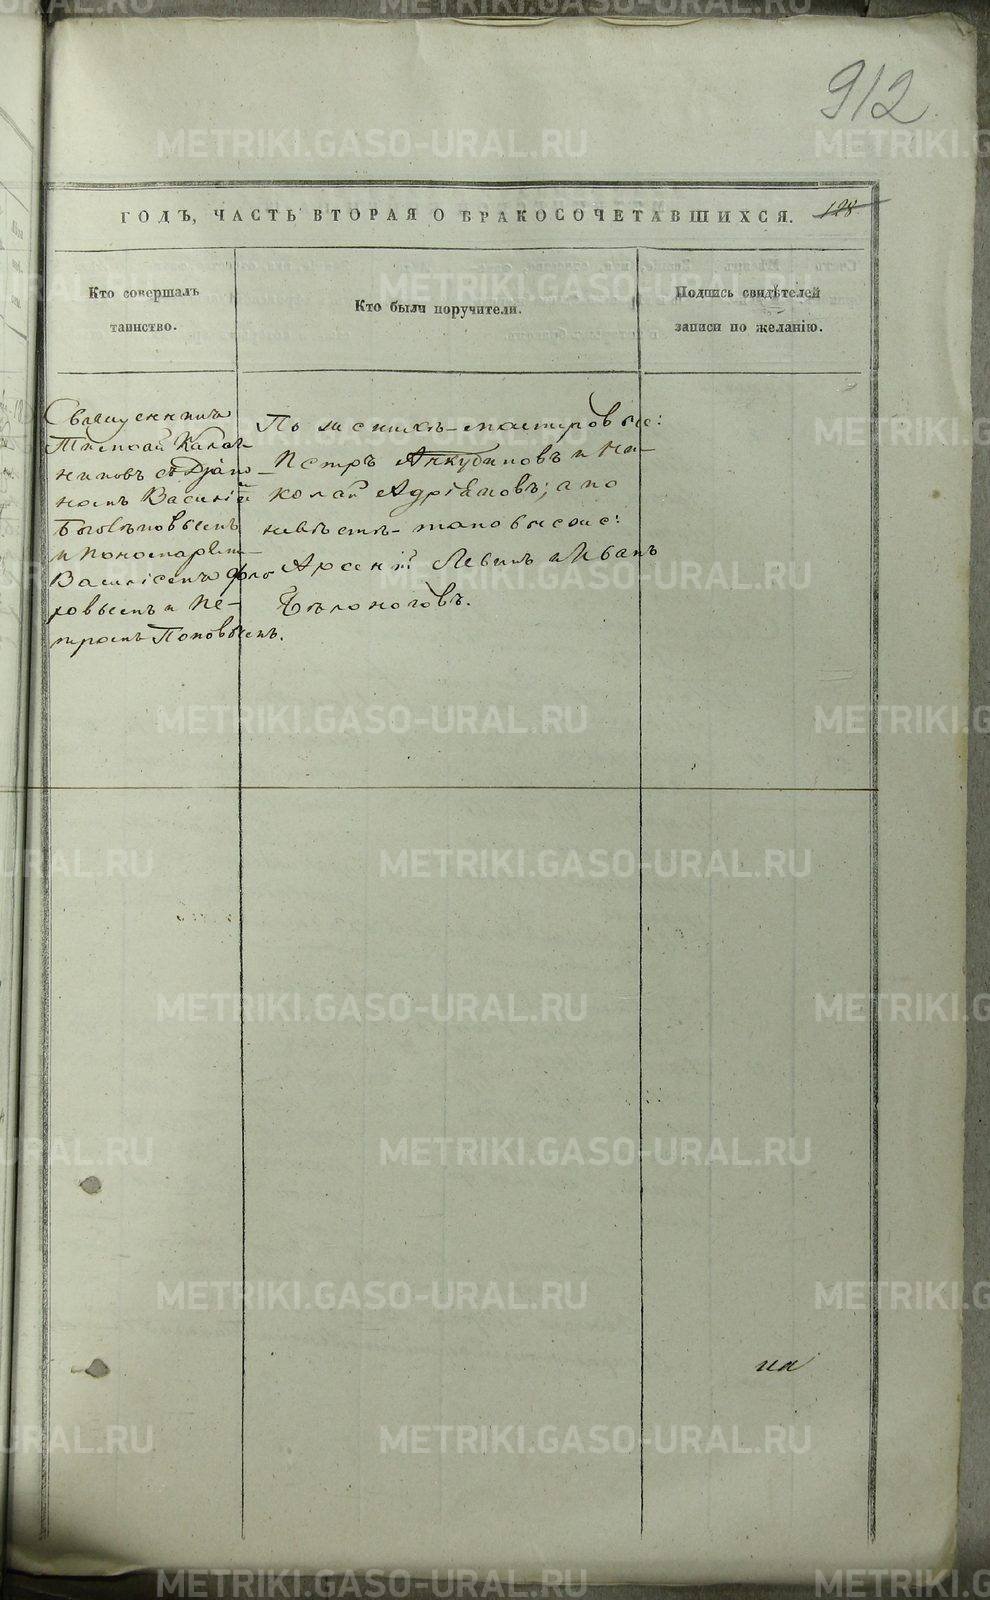 912
ГОДЪ, ЧАСТЬ ВТОРАЯ О БРАКОСОЧЕТАВШИХСЯ. 128
Кто совершалъ
таинство.
Кто были поручители.
Подпись свидѣтелей
записи по желанію.
Священникъ
Тимофей Калаш-
никовъ съ Діако-
номъ Василіемъ
и Пономарями
Василісемъ Фло-
ровымъ и Пе-
тромъ Поповымъ.
По женихѣ мастеровые:
Петръ Анкудиновъ и Ни-
колай Адріановъ; а по
невѣстѣ таковые же:
Арсеній Левинъ и Иванъ
Бѣлоноговъ.
METRIKI.GASO-URAL.RU